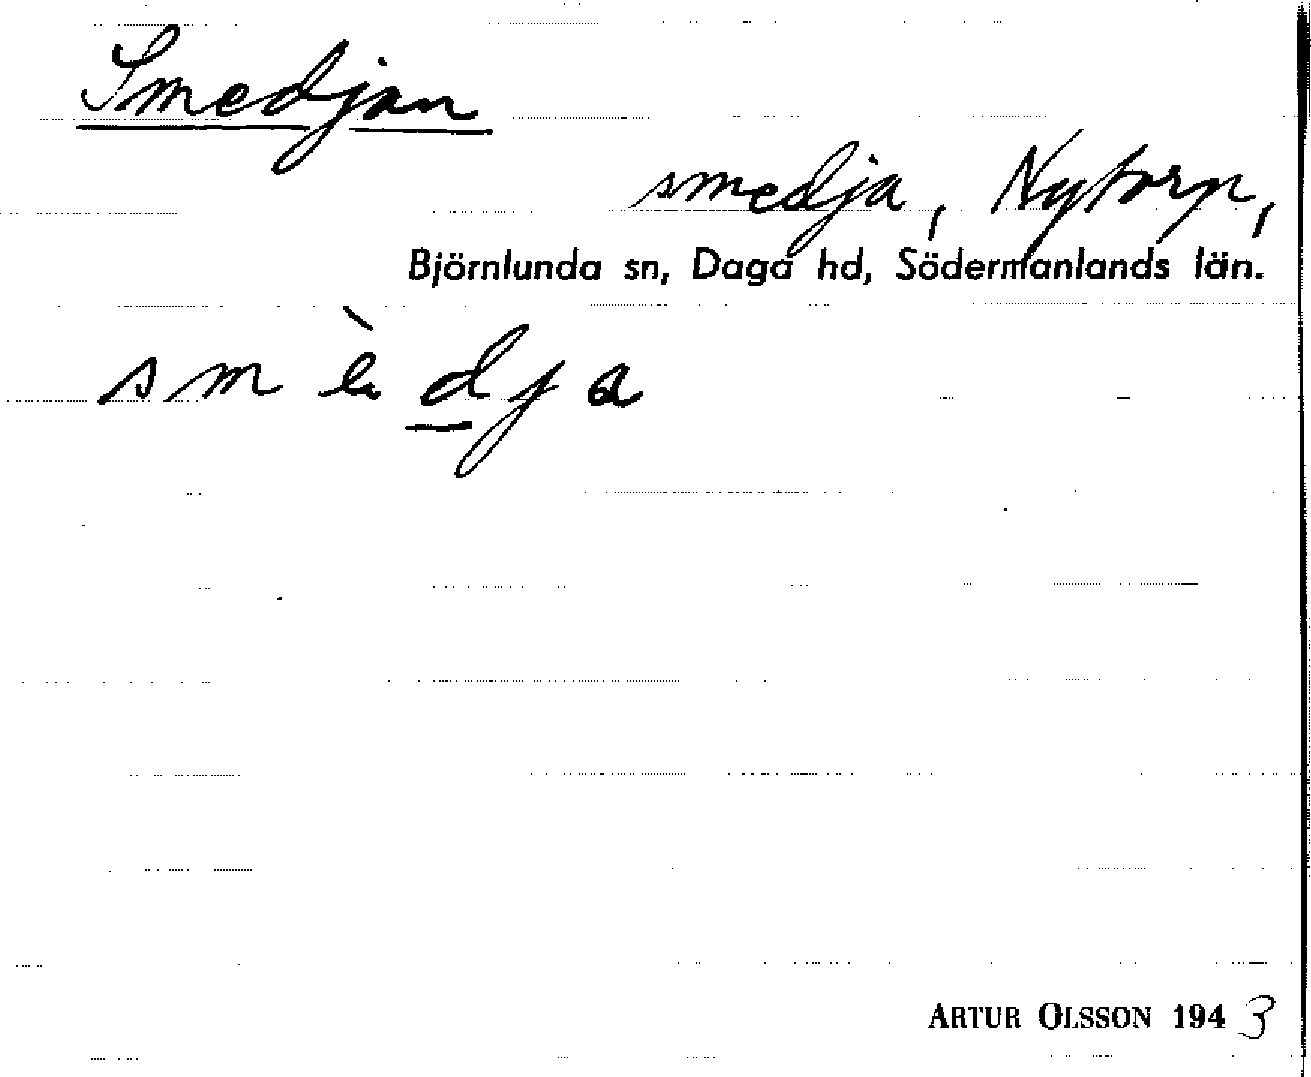 Smedjan
smedja, Nytorp,
Björnlunda sn, Daga hd, Södermanlands län.
smè̀dja
ARTUR OLSSON 1943